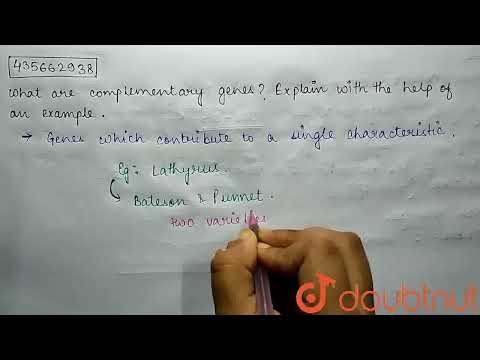 435662938
What are complementary genes? Explain with the help of
an example.
→ Genes which contribute to a single characteristic.
Eg:- Lathyrus.
Bateson & Punnet.
two varieties
doubtnut